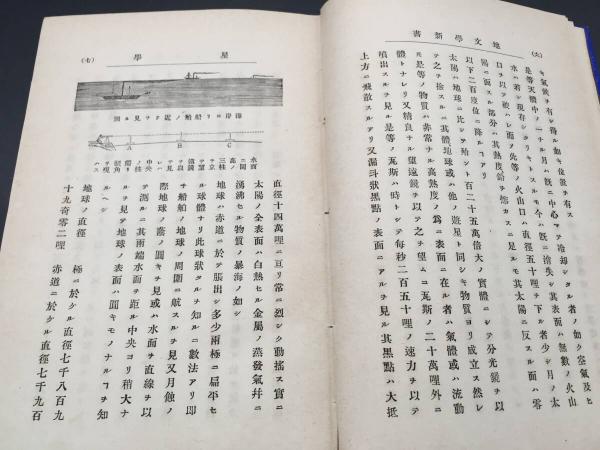 地文學新書
(六)
キ氣候ヲ有シ得ル如キ位置ヲ有ス
是等天體中ノ一ナル月ハ既ニ中心マテ冷却シタル者ノ如ク空氣及ヒ
水ハ若シ現存シタリキトスルモ今ハ既ニ消失シ其表面ハ無數ノ火山
口ヲ以テ被ハレ而シテ此等ノ火山口ハ直徑五十哩ヲ下ル者少シ月ノ太
陽ニ面スル部分ハ其熱度鉛ヲ熔カスニ足ルモ其太陽ニ反スル面ハ零
以下二百度ニ降ルコアリ
太陽ハ地球ニ比シテ殆ント百二十五萬倍大ノ實體ニシテ分光鏡ヲ以
テ之ヲ檢スルニ其體地球或ハ他ノ遊星ト同シキ物質ヨリ成立ス然レ
𪜈是等ノ物質ハ非常ナル高熱度ノ爲ニ表面ニ在ル者ハ氣體或ハ流動
體トナレリ又精良ナル望遠鏡ヲ以テ之ヲ望ムニ瓦斯ノ二十萬哩外ニ
噴出スルヲ見ル是等ノ瓦斯ハ時トシテ毎秒二百五十哩ノ速力ヲ以テ
上方ニ飛散スルアリ又漏斗狀黑點ノ表面ニアルヲ見ル其黑點ハ大抵
星學
(七)
海岸ヨリ船舶ノ近クヲ見ル圖
A
B
C
直徑十四萬哩ニ亘リ常ニ烈シク動搖ス實ニ
太陽ノ全表面ハ白熱セル金屬ノ蒸發氣幷ニ
湧沸セル物質ノ暴海ノ如シ
地球ハ赤道ニ於テ脹出シ多少兩極ニ扁平セ
ル球體ナリ此球狀タルヲ知ルニ數法アリ即
チ船舶ノ地球ノ周圍ニ航スルヲ見又月蝕ノ
際地球ノ蔭ノ圓キヲ見或ハ水面ヲ直線ヲ以
テ測ルニ其兩端水面ヲ距ル中央ヨリ稍大ナ
ルヲ見テ地球ノ表面ハ圓キモノナルコヲ知
ルヘシ
地球ノ直徑 極ニ於ケル直徑七千八百九
十九奇零二哩 赤道ニ於ケル直徑七千九百